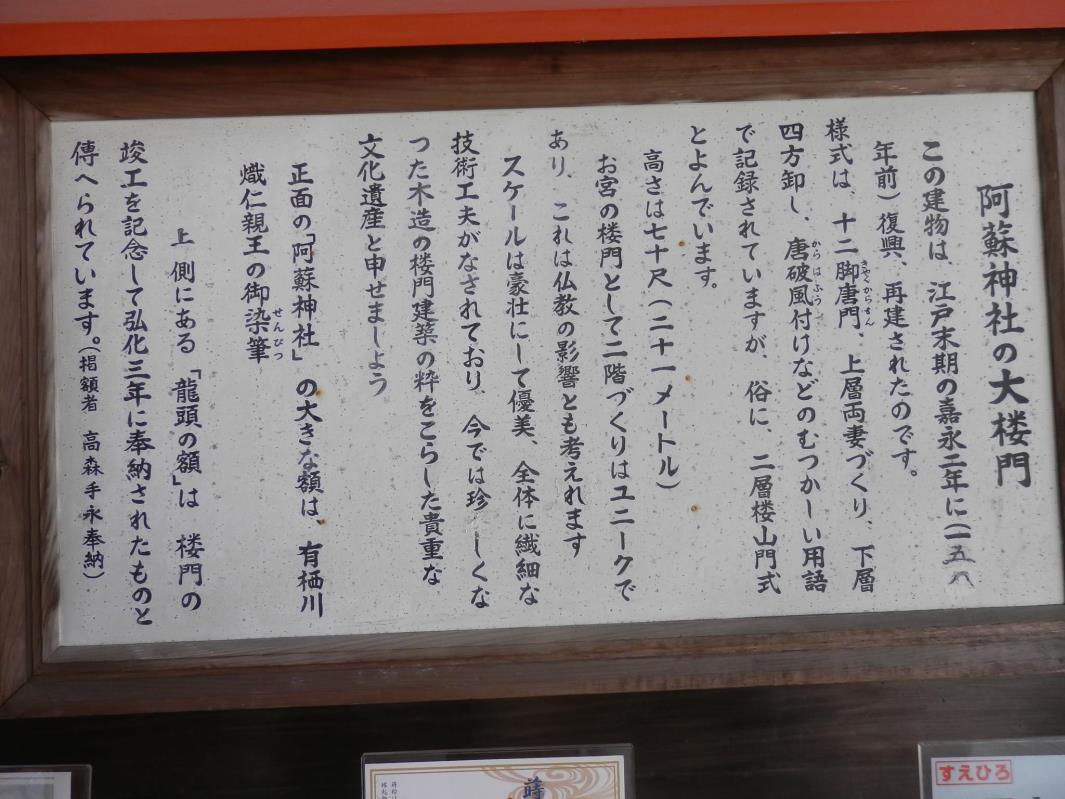 阿蘇神社の大楼門
この建物は、江戸末期の嘉永二年に(一五八
年前)復興、再建されたのです。
様式は、十二脚唐門、上層両妻づくり、下層
四方卸し、唐破風付けなどのむつかしい用語
で記録されていますが、俗に、二層楼山門式
とよんでいます。
高さは七十尺(二十一メートル)
お宮の楼門として二階づくりはユニークで
あり、これは仏教の影響とも考えれます
スケールは豪壮にして優美、全体に繊細な
技術工夫がなされており、今では珍しくな
つた木造の楼門建築の粋をこらした貴重な
文化遺産と申せましよう
正面の「阿蘇神社」の大きな額は、有栖川
熾仁親王の御染筆
せんぴつ
上側にある「龍頭の額」は楼門の
竣工を記念して弘化三年に奉納されたものと
傳へられています。(掲額者 高森手永奉納)
すえひろ
蒔